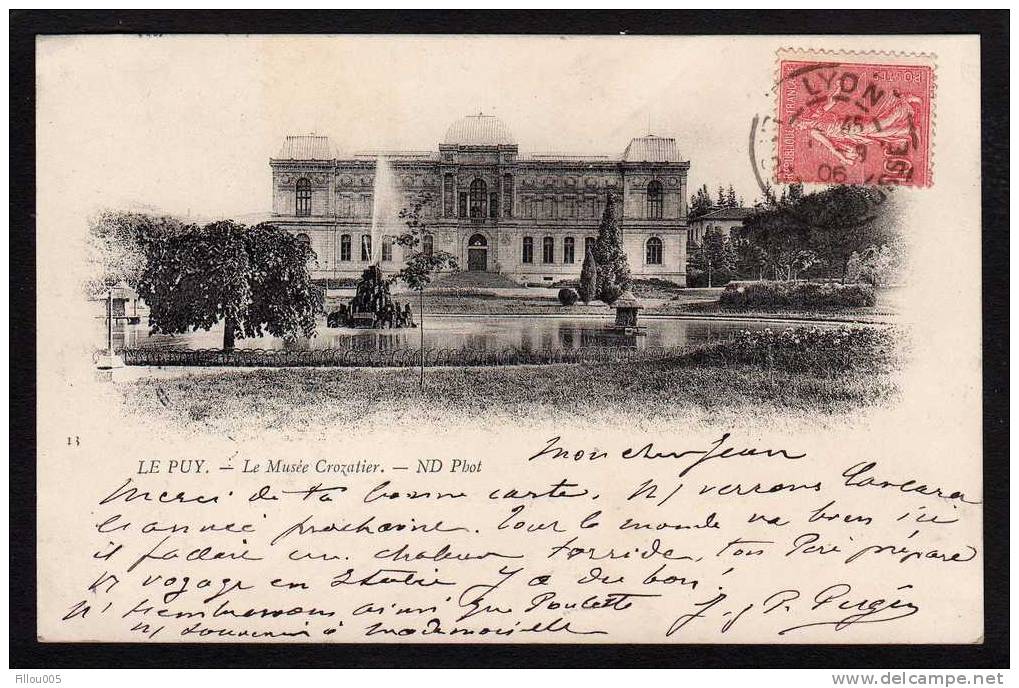 LYON
RHONE
45
9
06
POSTES
REPUBLIQUE FRANCAISE
13
LE PUY. — Le Musée Crozatier. — ND Phot
Mon cher Jean
Merci de ta bonne carte. verrons
l'année prochaine. Tout le monde va bien ici
il fallait une chaleur torride, ton Père prépare
voyage en Italie
embrassons ainsi que Poulette
souvenir à Mademoiselle
Filou005
delcampe.net